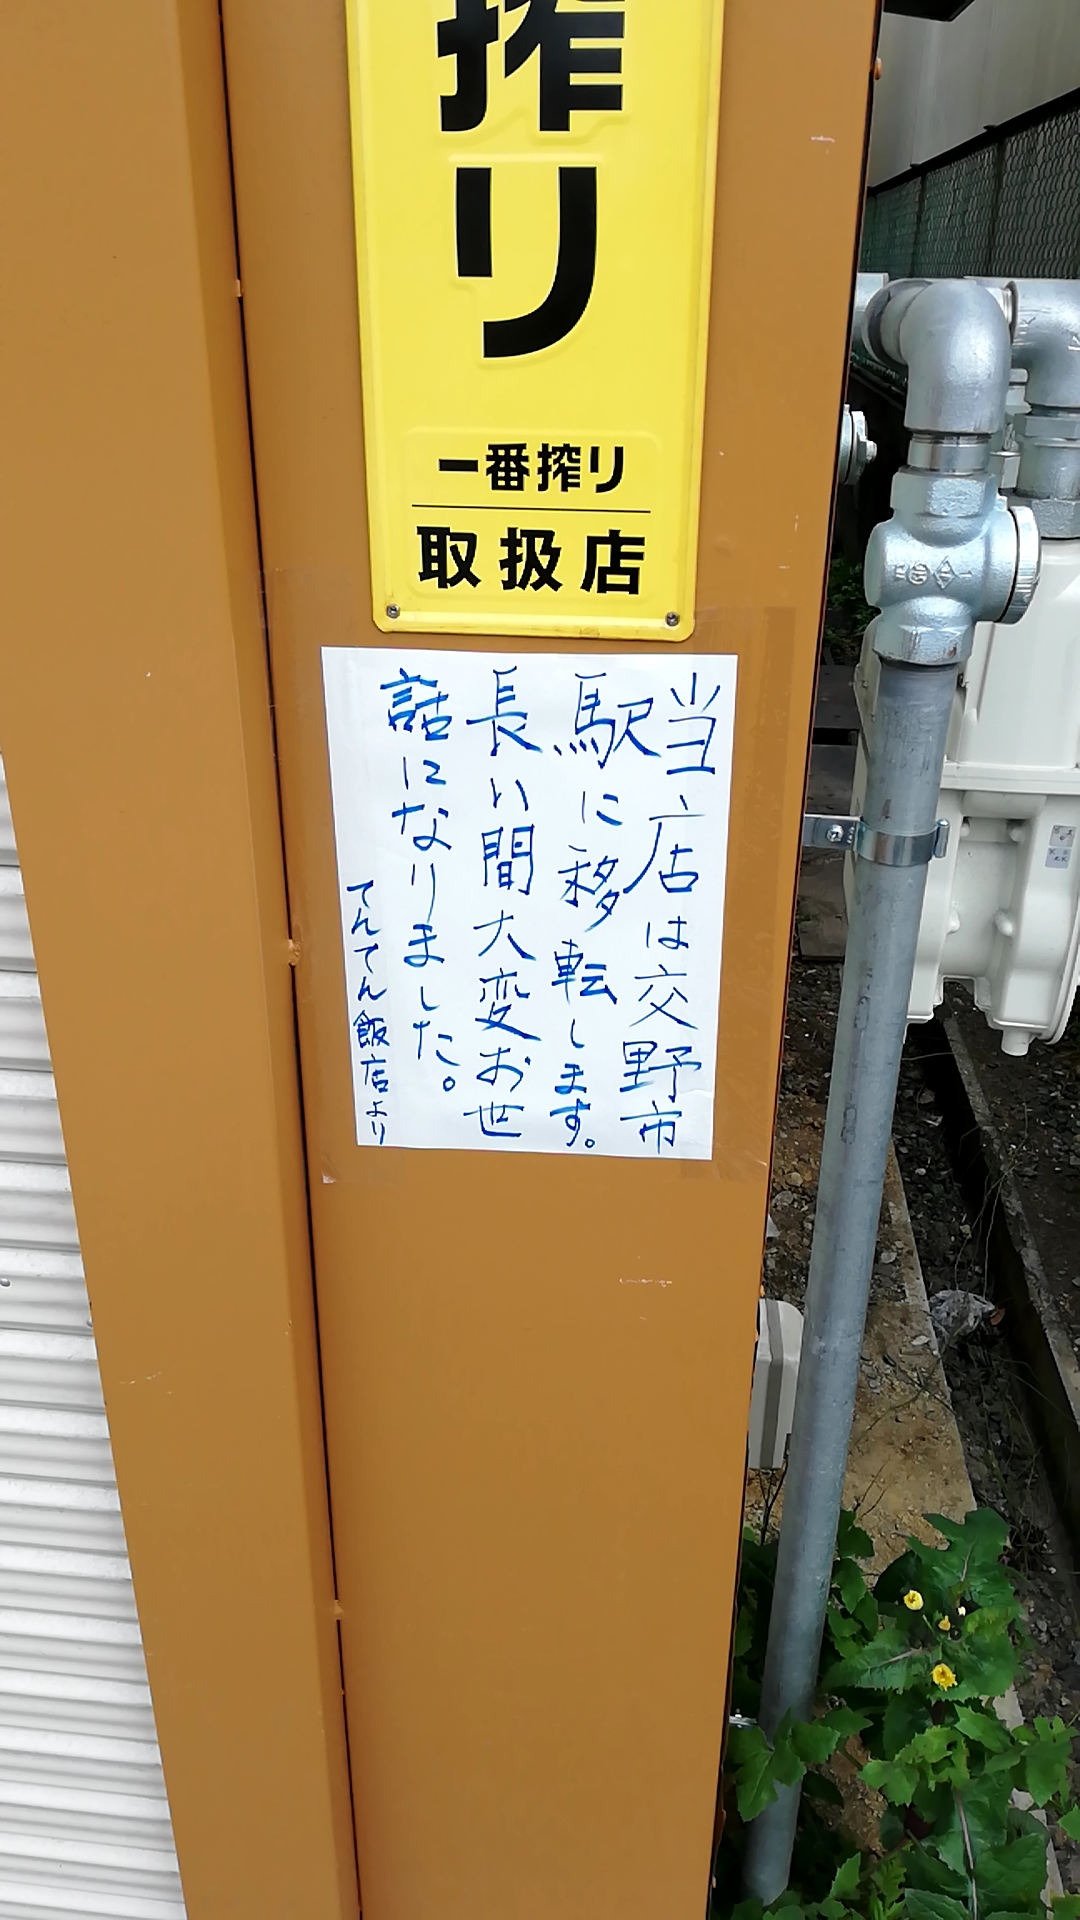 搾り
一番搾り
取扱店
当店は交野市
駅に移転します。
長い間大変お世
話になりました。
てんてん飯店より